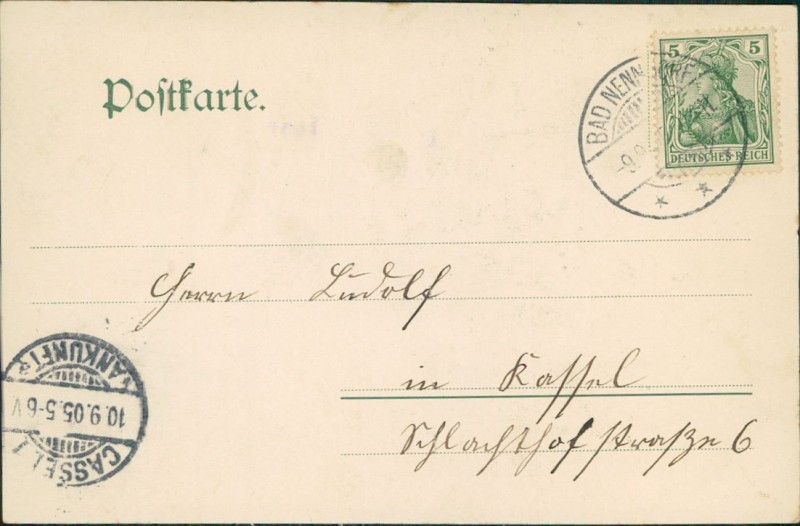 Postkarte.
5 5
DEUTSCHES REICH
BAD NENNDORF
-9.9.
Herrn Ludolf
in Kassel
Schlachthofstraße 6
ANKUNFT
10.9.05.5-6V
CASSEL 1